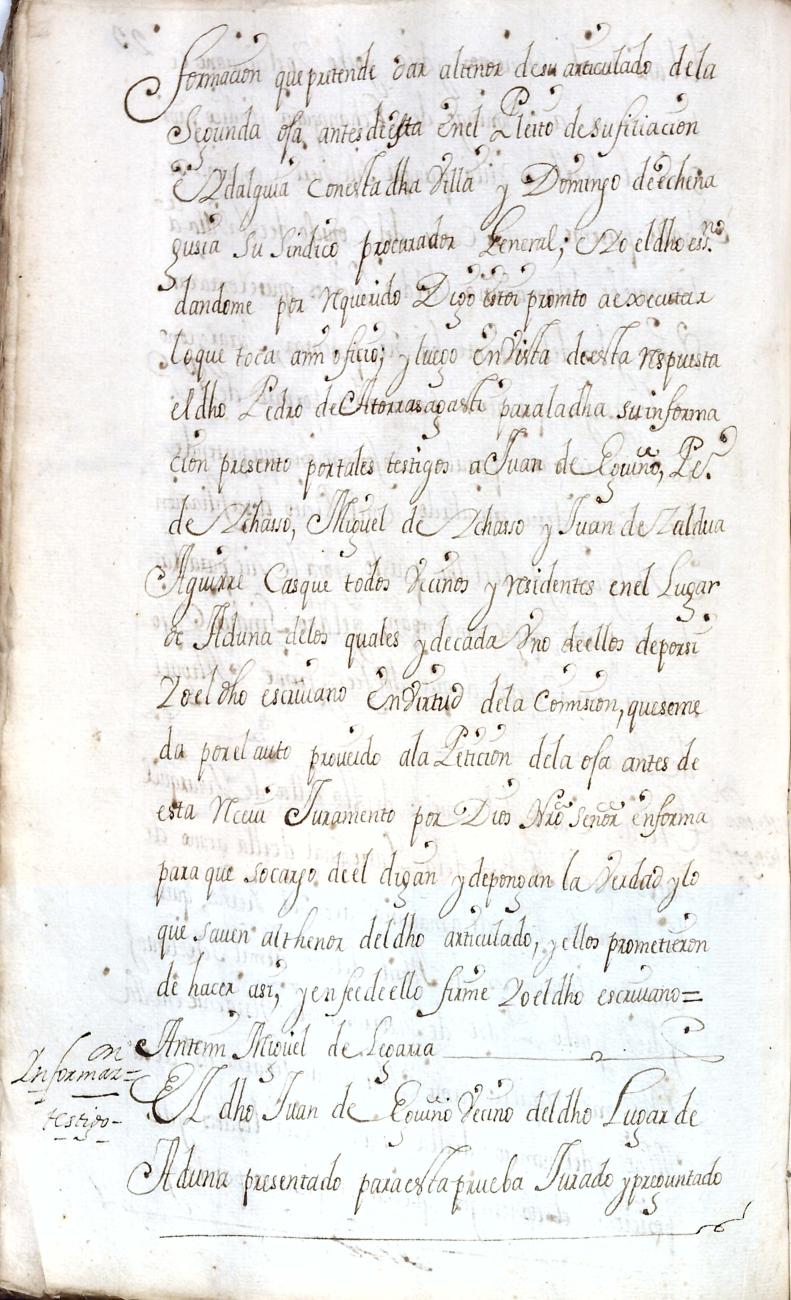 formacion que pretende dar altenor desu articulado dela
Segunda ofa antesdesta enel Pleito desufiliacion
Ydalguia conesta dha Villa y Domingo deechena
gusia su Sindico procurador General; Yo eldho ess.no
dandome por requerido Digo estoi promto aexecutar
loque toca ami oficio; y luego enVista deesta respuesta
eldho Pedro de Atorrasagasti paraladha suinforma
cion presento portales testigos a Juan de Eguino, Pe.
de Achasso, Miguel de Achasso y Juan de Zaldua
Aguirre Casque todos Vecinos y residentes enel Lugar
de Aduna delos quales y decada Vno deellos deporsi
Yo el dho escriuano enVirtud dela Comision, queseme
da porel auto proueido ala Peticion dela ofa antes de
esta Receui Juramento por Dios Nro Señor enforma
para que socargo deel digan y depongan la Verdad y lo
que sauen althenor deldho articulado, y ellos prometieron
de hacer asi, y en feedeello firme Yo eldho escriuano=
Antemi Miguel de Legarra
Informaz.on
testigo
El dho Juan de Eguino Vecino deldho Lugar de
Aduna presentado paraesta prueba Jurado y preguntado